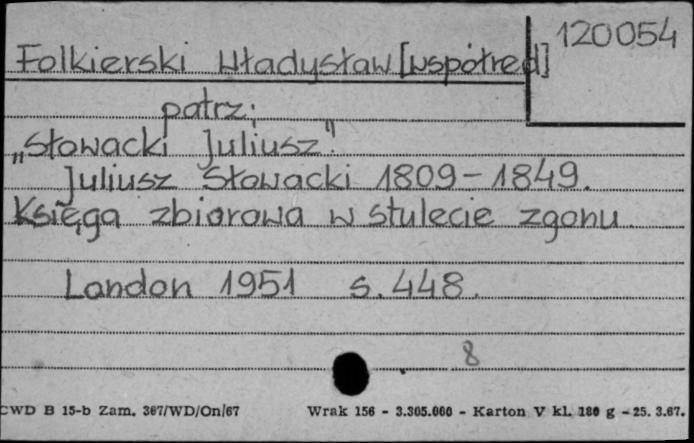 120054
Folkierski Władysław [współred]
patrz:
„Słowacki Juliusz"
Juliusz Słowacki 1809-1849.
Księga zbiorowa w stulecie zgonu.
London 1951 s. 448.
8
CWD B 15-b Zam. 367/WD/On/67 Wrak 156 - 3.305.000 - Karton V kl. 180 g - 25. 3.67.